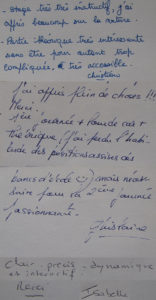 - Stage très très instructif, j'ai
appris beaucoup sur la matière.
- Partie théorique très intéressante
sans être pour autant trop
compliquée. & très accessible.
Christiane
J'ai appris plein de choses !!!
Merci.
1ère journée + lourde car +
théorique, (j'ai perdu l'habi-
tude des positions assises des
bancs d'école) mais néces-
saire pour la 2ème journée
passionnante.
Clair - précis - dynamique
et interactif.
Merci Isabelle